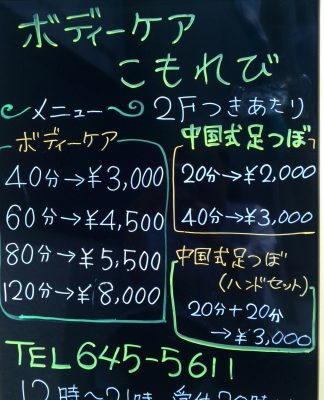 ボディーケア
こもれび
メニュー 2Fつきあたり
ボディーケア
40分→¥3,000
60分→¥4,500
80分→¥5,500
120分→¥8,000
中国式足つぼ
20分→¥2,000
40分→¥3,000
中国式足つぼ
(ハンドセット)
20分+20分
→¥3,000
TEL 645-5611
12時〜21時